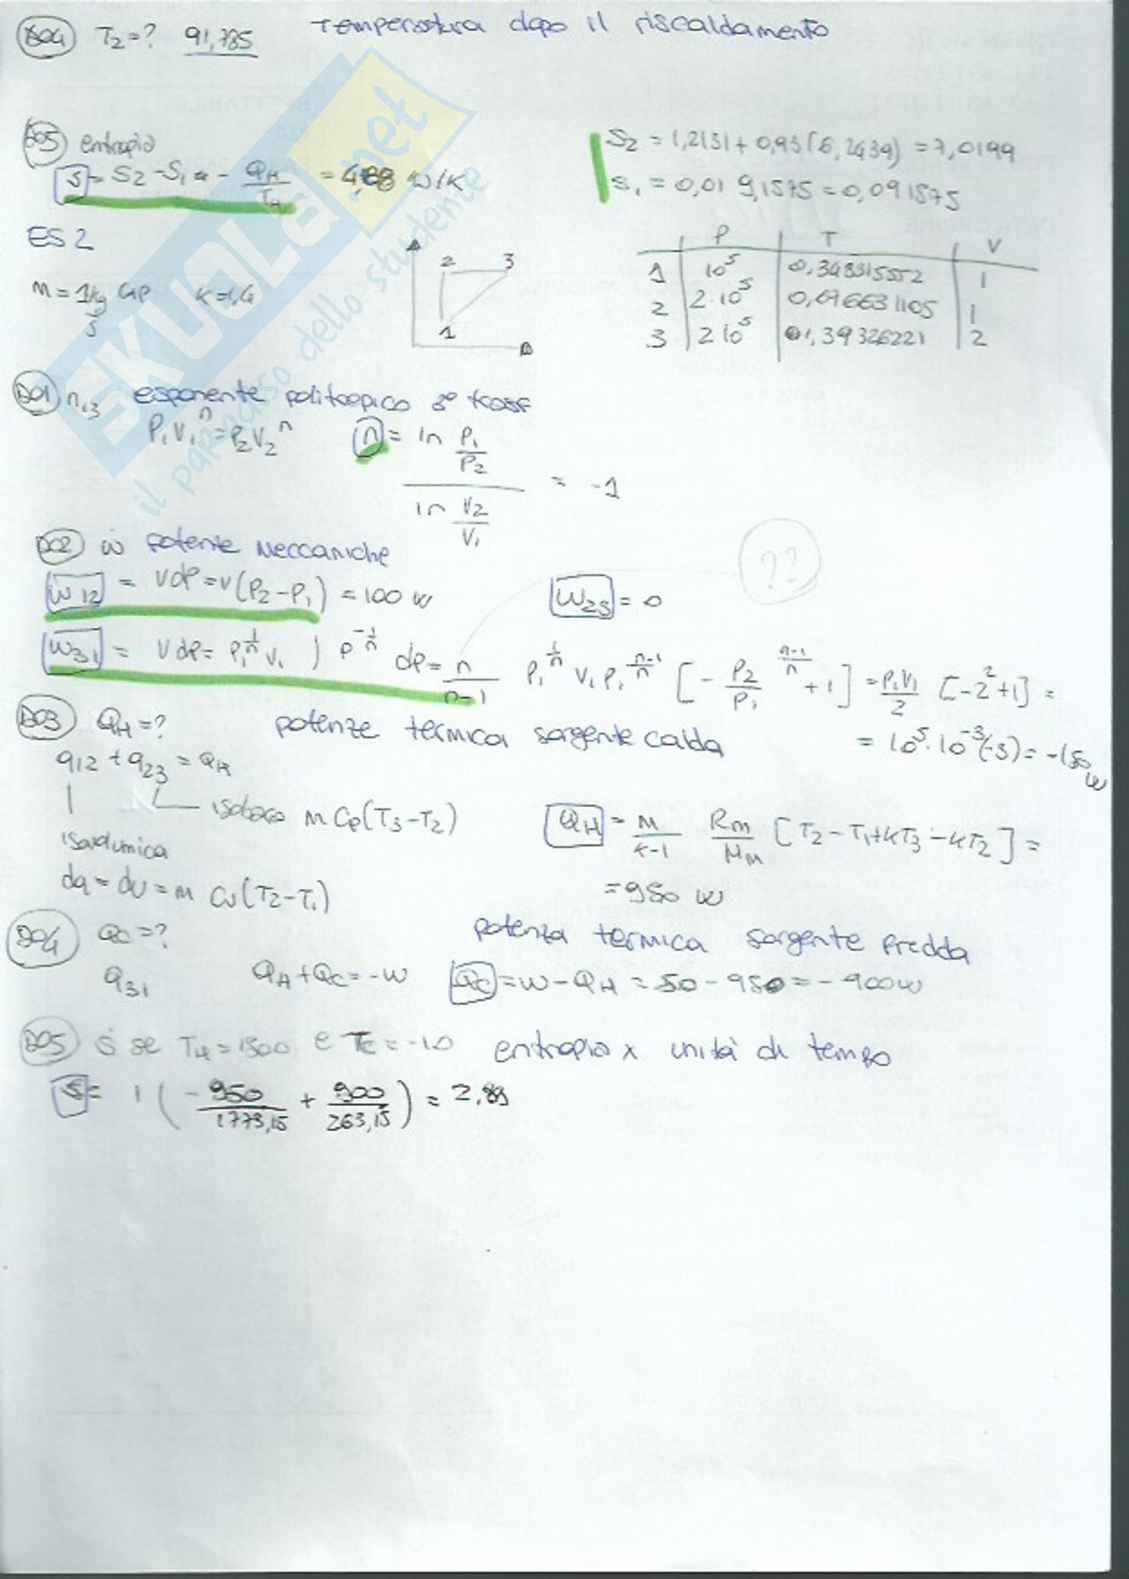 D04 T2=? 91,785 Temperatura dopo il riscaldamento
D05 entropia
S = S2 - S1 - QH/TH = 4,88 W/K
S2 = 1,2131 + 0,93(6,2439) = 7,0199
S1 = 0,01 9,1575 = 0,091575
ES 2
m = 1kg/s GP K=1,4
2 3
1
P T V
1 10^5 0,348315552 1
2 2·10^5 0,696631105 1
3 2 10^5 1,39326221 2
D01 n,3 esponente politropico 3° trasf
P1V1^n = P2V2^n n = ln P1/P2 / ln V2/V1 = -1
D02 ẇ potenze meccaniche
W12 = Vdp = V(P2-P1) = 100 W W23 = 0
??
W31 = Vdp = P1^1/n V1 ) P^-1/n dp = n/n-1 P1^1/n V1 P1^n-1/n [-P2/P1^n-1/n +1] = P1V1/2 [-2^2+1] =
= 10^5·10^-3(-3) = -150 W
D03 QH=? potenze termica sorgente calda
q12 + q23 = QH
isobara m Cp(T3-T2)
isocumica
dq = du = m Cv(T2-T1)
QH = M/K-1 Rm/Mm [T2-T1+KT3-KT2] =
= 950 W
D04 QC=? potenza termica sorgente fredda
q31 QH+QC=-W QC = W-QH = 50-950 = -900W
D05 ṡ se TH=1500 e TC=-10 entropia x unità di tempo
S = 1 (-950/1773,15 + 900/263,15) = 2,88
SKUOLA.net
il paradiso dello studente